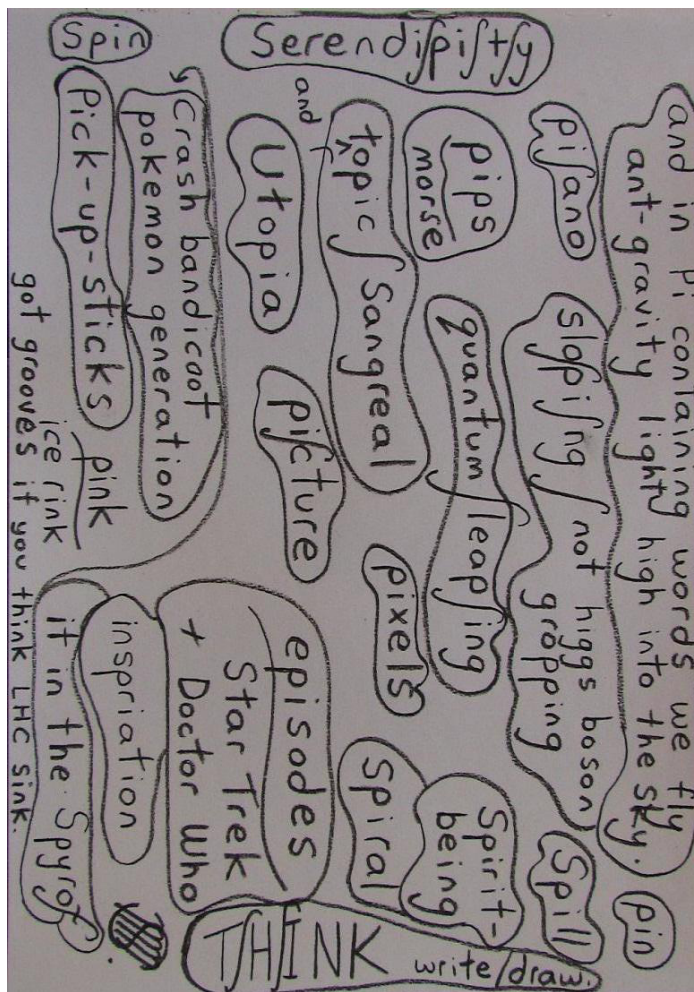 Spin
Serendi∫pi∫t∫y
and in pi containing words we fly
ant-gravity light high into the sky.
pi∫ano
pin
slo∫pi∫ng ∫ not higgs boson
grapping
Spill
pips
morse
quantum ∫ leap∫ing
Spirit-
being
and
topic ∫ Sangreal
pixels
Spiral
Utopia
pi∫cture
episodes
Star Trek
+ Doctor Who
Crash bandicoot
pokemon generation
inspriation
Pick-up-sticks
pink
ice rink
it in the Spyrof
got grooves if you think LHC sink.
T∫H∫INK write/draw.